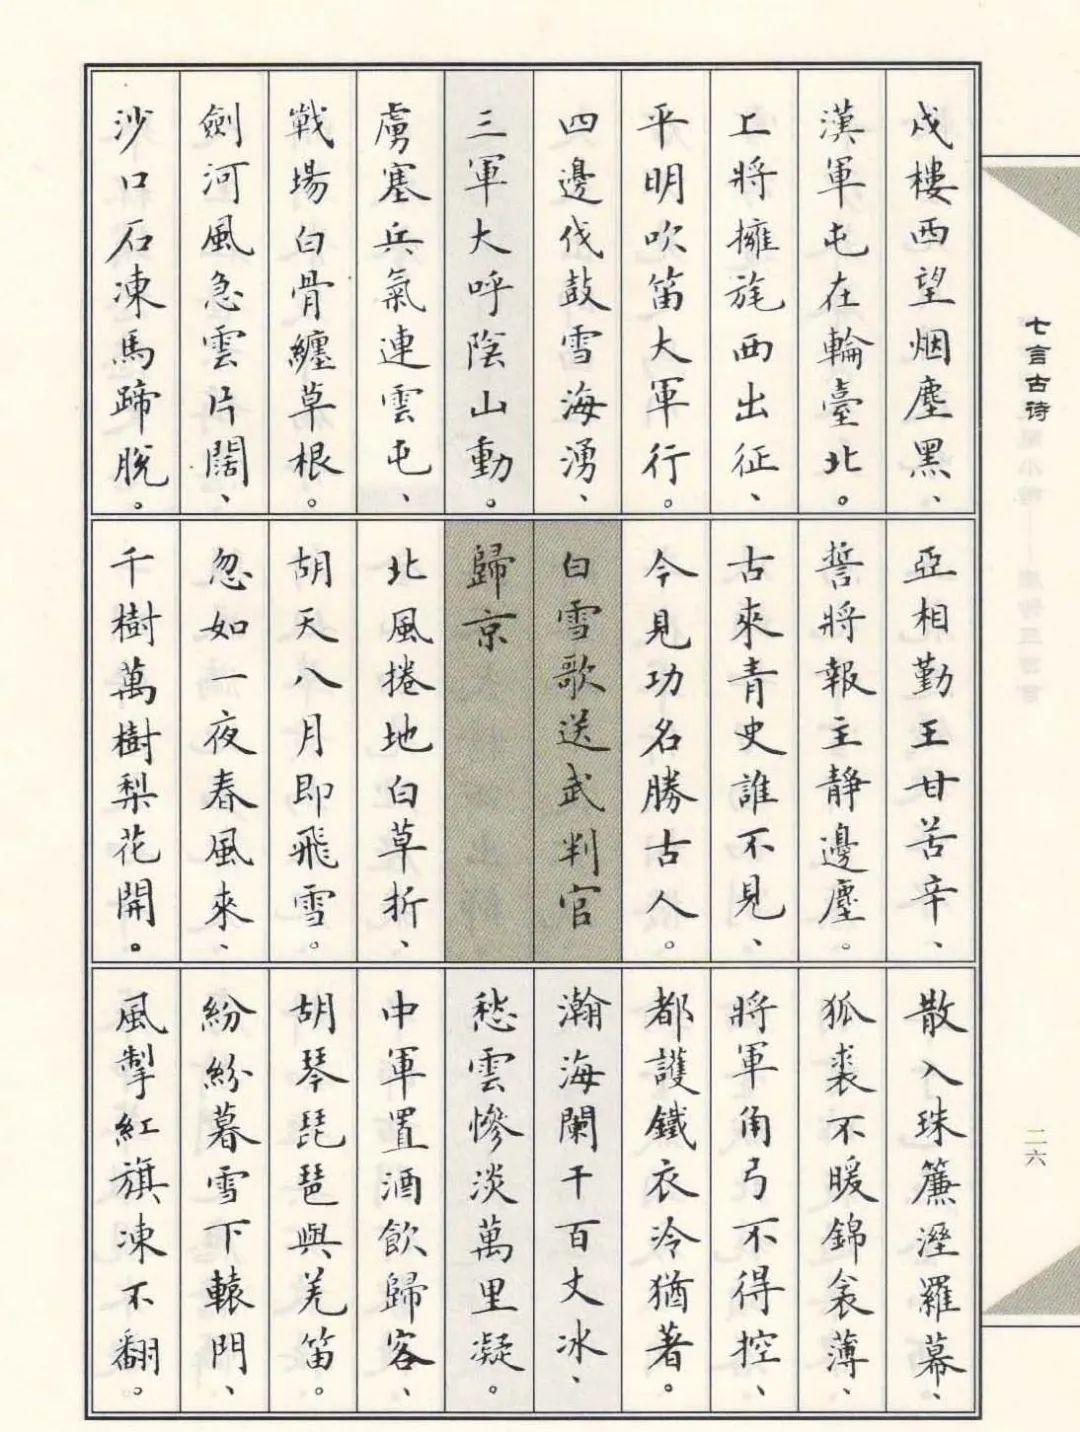 戍樓西望烟塵黑、
漢軍屯在輪臺北。
上將擁旄西出征、
平明吹笛大軍行。
四邊伐鼓雪海湧、
三軍大呼陰山動。
虜塞兵氣連雲屯、
戰場白骨纏草根。
劍河風急雲片闊、
沙口石凍馬蹄脫。
亞相勤王甘苦辛、
誓將報主靜邊塵。
古來青史誰不見、
今見功名勝古人。
白雪歌送武判官
歸京
北風捲地白草折、
胡天八月即飛雪。
忽如一夜春風來、
千樹萬樹梨花開。
散入珠簾溼羅幕、
狐裘不暖錦衾薄、
將軍角弓不得控、
都護鐵衣冷猶著。
瀚海闌干百丈冰、
愁雲慘淡萬里凝。
中軍置酒飲歸客、
胡琴琵琶與羌笛。
紛紛暮雪下轅門、
風掣紅旗凍不翻。
七言古诗
二六